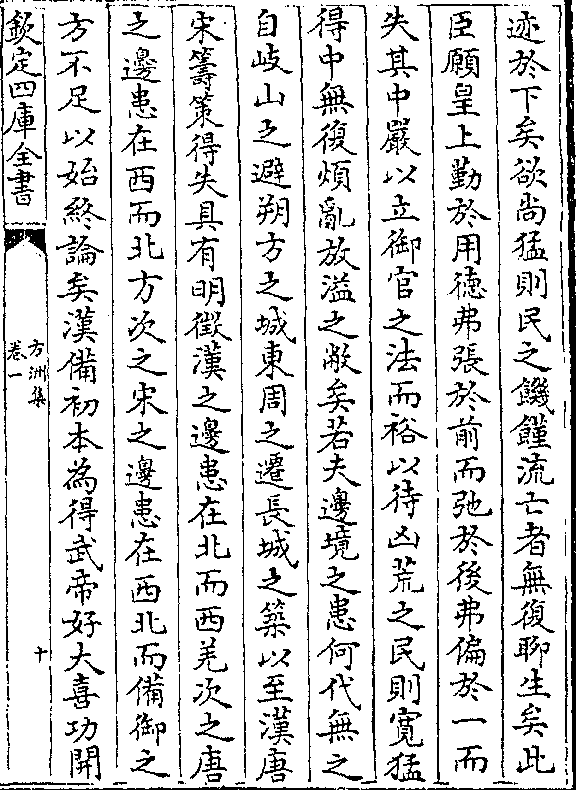 迹於下矣欲尚猛則民之饑饉流亡者無復聊生矣此
臣願皇上勤於用徳弗張於前而弛於後弗偏於一而
失其中嚴以立御官之法而裕以待凶荒之民則寛猛
得中無復煩亂放溢之敝矣若夫邊境之患何代無之
自岐山之避朔方之城東周之遷長城之築以至漢唐
宋籌策得失具有明徵漢之邊患在北而西羌次之唐
之邊患在西而北方次之宋之邊患在西北而備御之
方不足以始終論矣漢備初本為得武帝好大喜功開
欽定四庫全書
方洲集
卷一
十